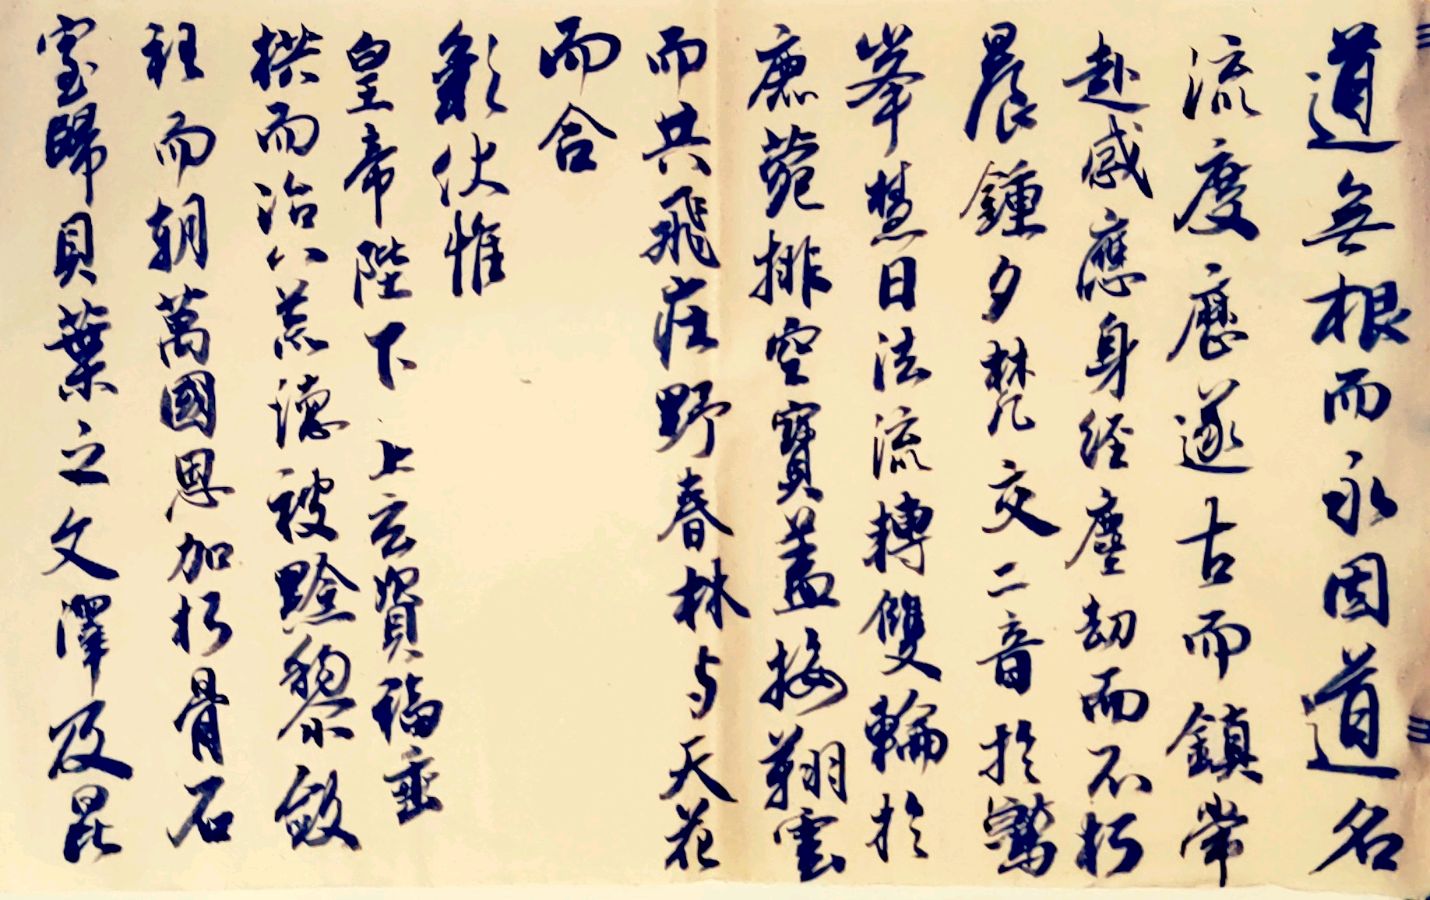 道無根而永固道名
流慶歷遂古而鎮常
赴感應身經塵劫而不朽
晨鍾夕梵交二音於鷲
峯慧日法流轉雙輪於
鹿菀排空寶蓋接翔雲
而共飛莊野春林与天花
而合
彩伏惟
皇帝陛下上玄資福垂
拱而治八荒德被黔黎斂
衽而朝萬國恩加朽骨石
室歸貝葉之文澤及昆